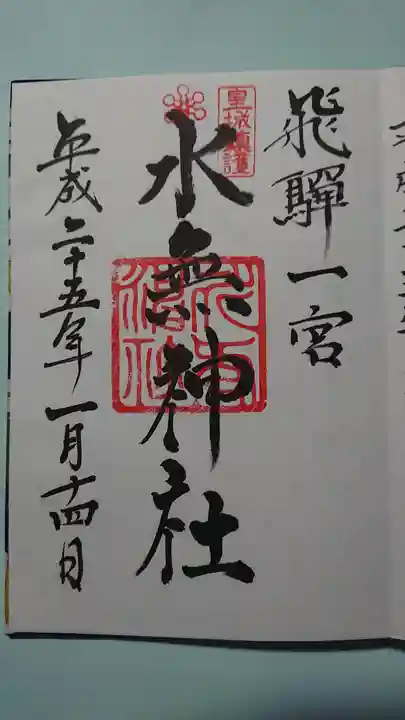 飛騨一宮
皇城鎮護
水無神社
平成二十五年一月十四日